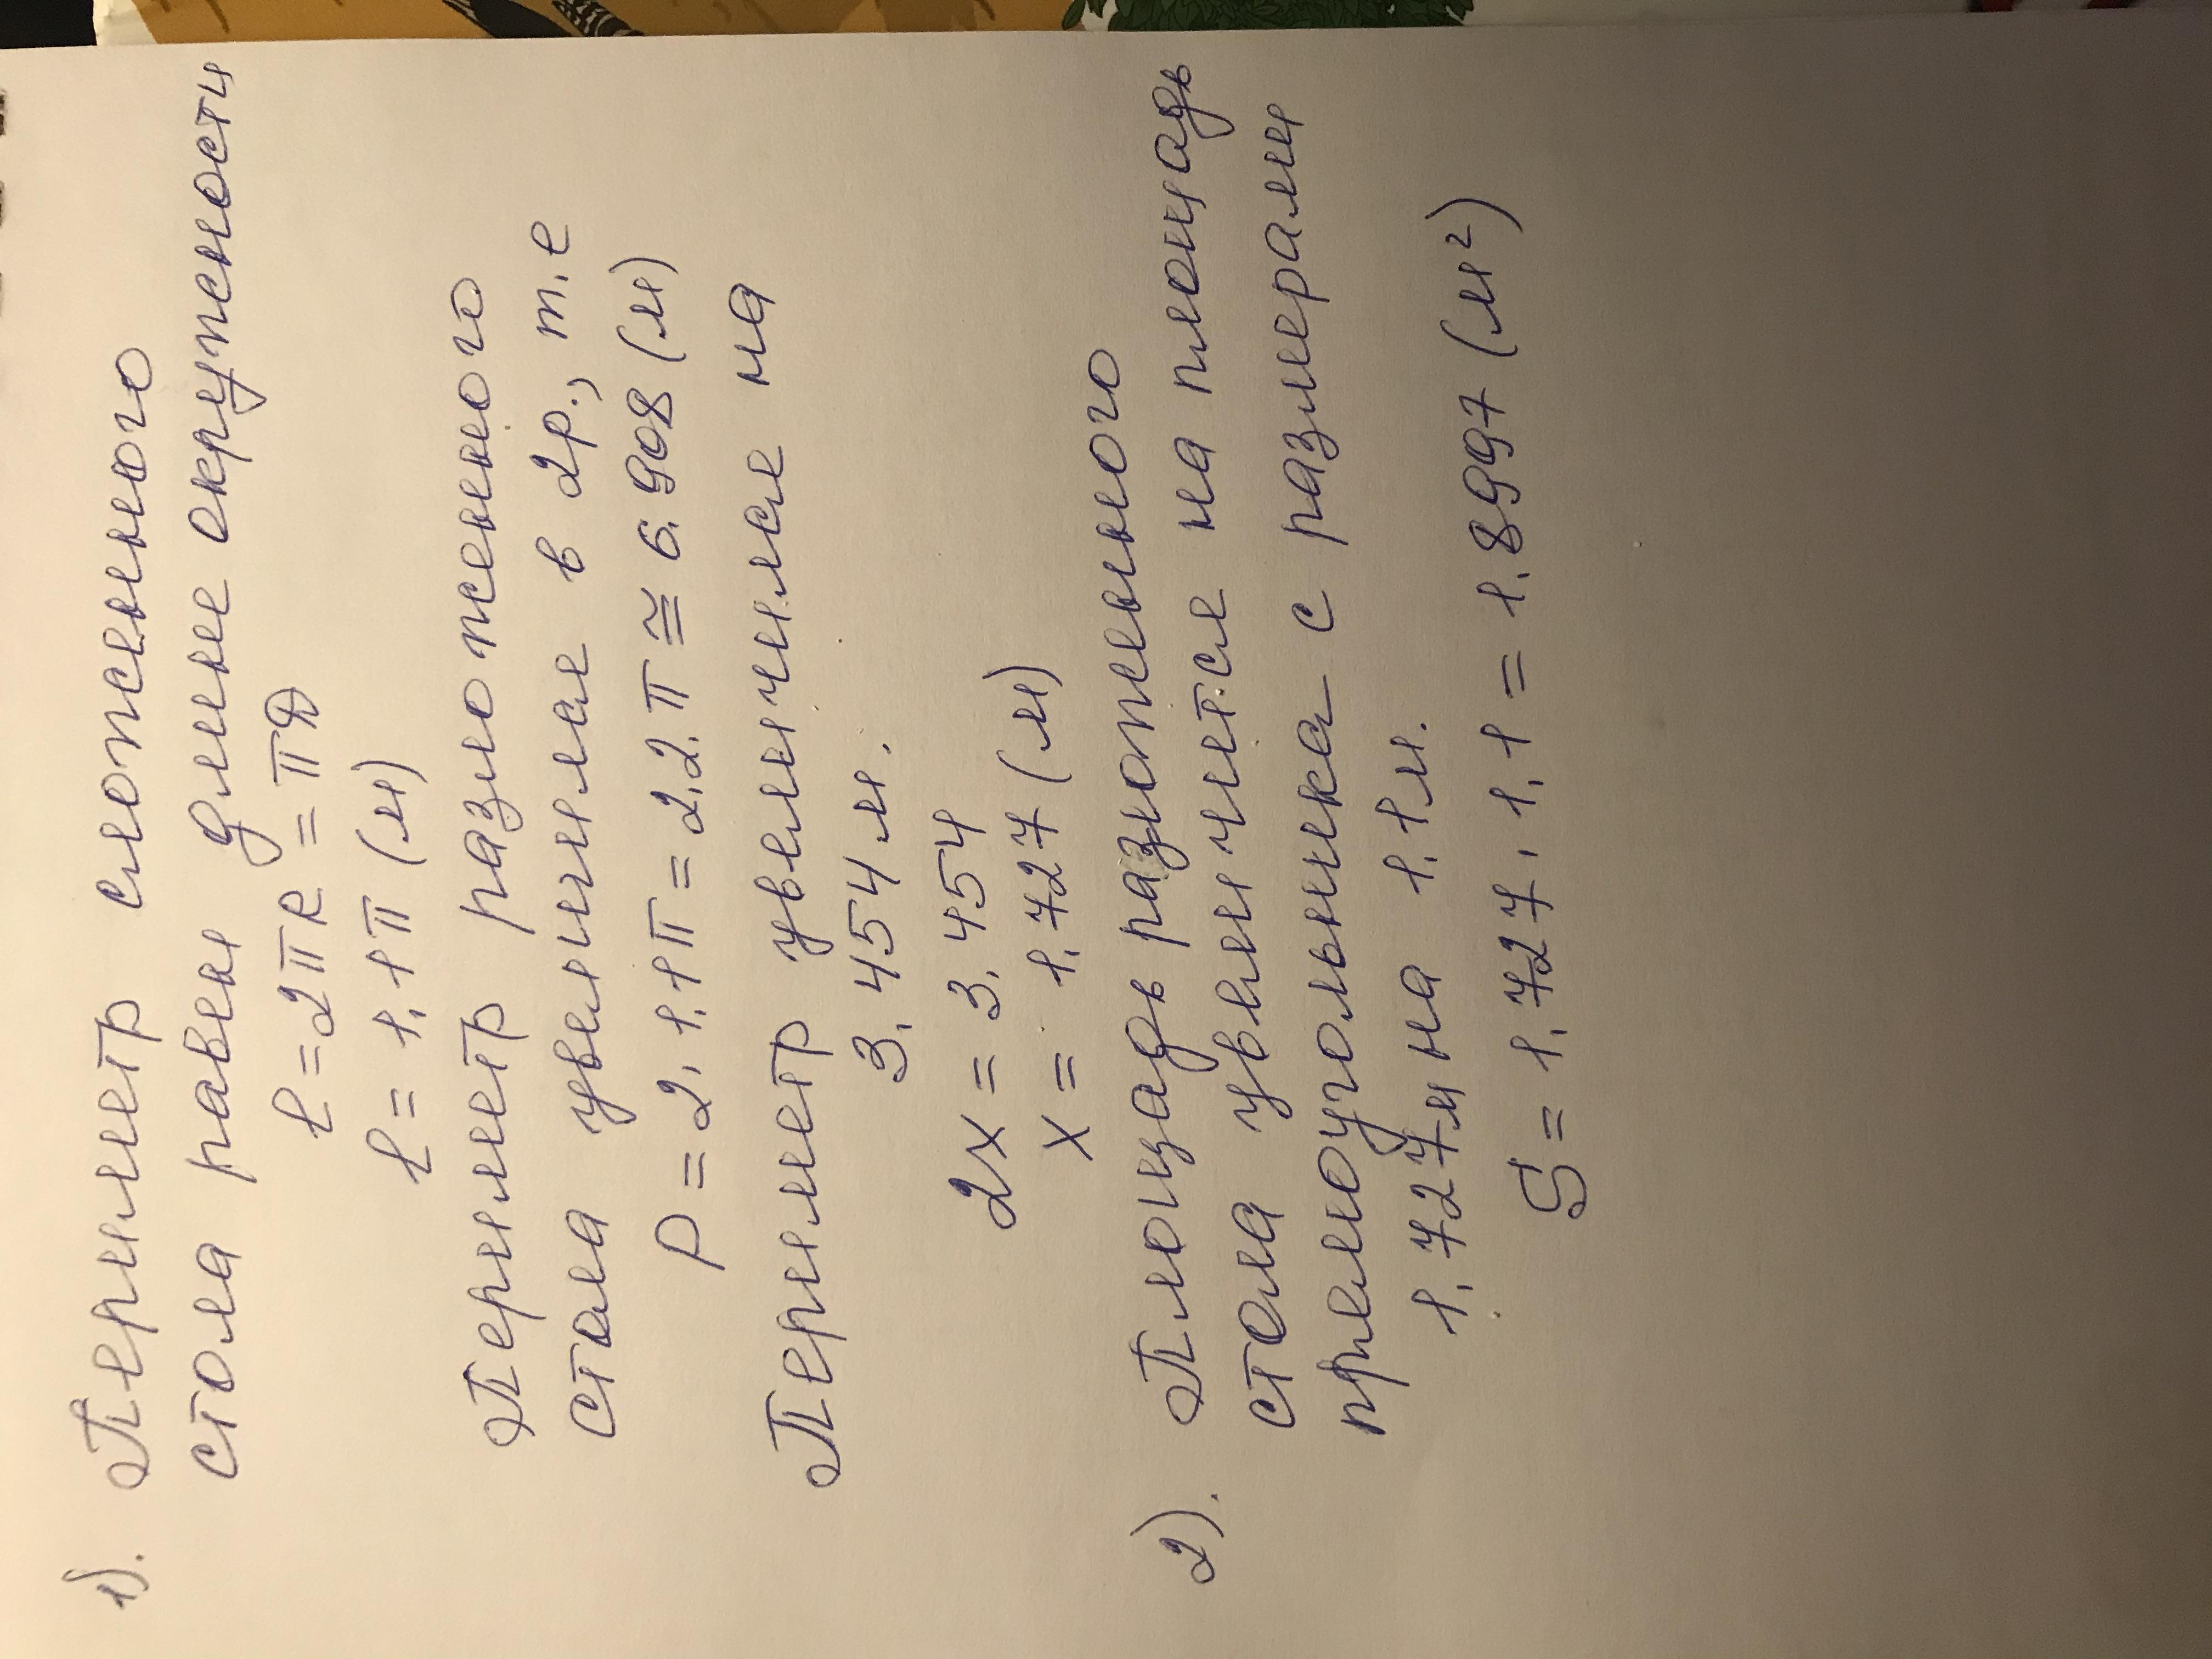 1). Периметр сложенного
стола равен длине окружности
ℓ = 2πR = πD
ℓ = 1.1π (м)
Периметр разложенного
стола увеличился в 2р., т.е
P = 2·1.1π = 2.2π ≅ 6.908 (м)
Периметр увеличился на
3.454 м.
2x = 3.454
x = 1.727 (м)
2). Площадь разложенного
стола увеличится на площадь
прямоугольника с размерами
1.727м на 1.1м.
S = 1.727·1.1 = 1.8997 (м²)